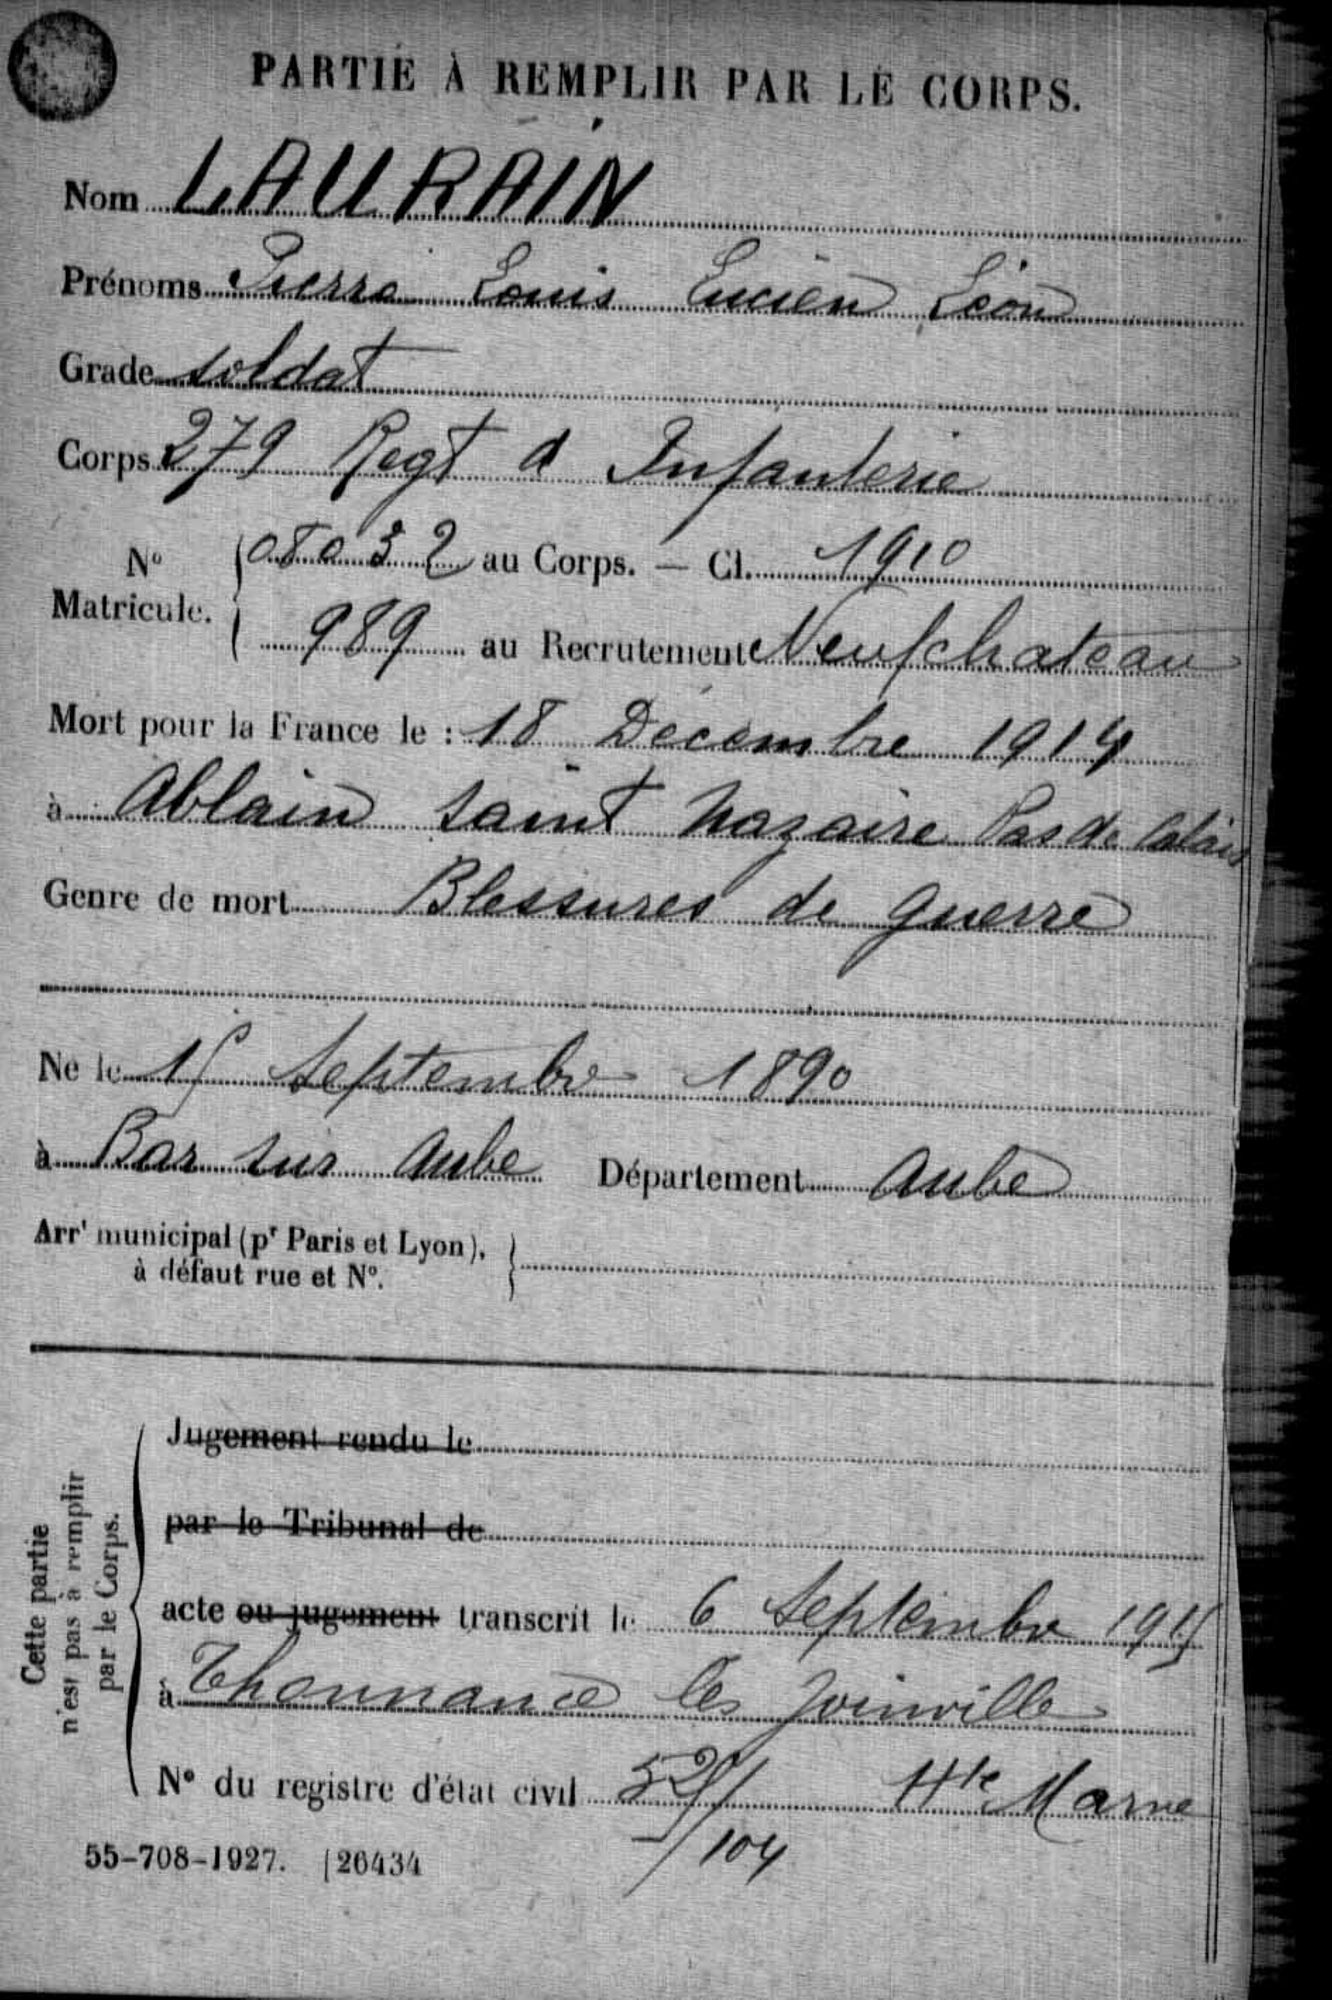 PARTIE À REMPLIR PAR LE CORPS.
Nom LAURAIN
Prénoms Pierre Louis Lucien Léon
Grade soldat
Corps 279 Regt d Infanterie
N° Matricule. 08032 au Corps. — Cl. 1910
989 au Recrutement Neufchateau
Mort pour la France le : 18 Décembre 1914
à Ablain Saint Nazaire Pas de Calais
Genre de mort Blessures de guerre
Né le 15 Septembre 1890
à Bar sur Aube Département Aube
Arrt municipal (pr Paris et Lyon),
à défaut rue et N°.
Cette partie
n'est pas à remplir
par le Corps.
Jugement rendu le
par le Tribunal de
acte ou jugement transcrit le 6 Septembre 1915
à Thonnance les Joinville
N° du registre d'état civil Hte Marne
/104
55-708-1927. [26434